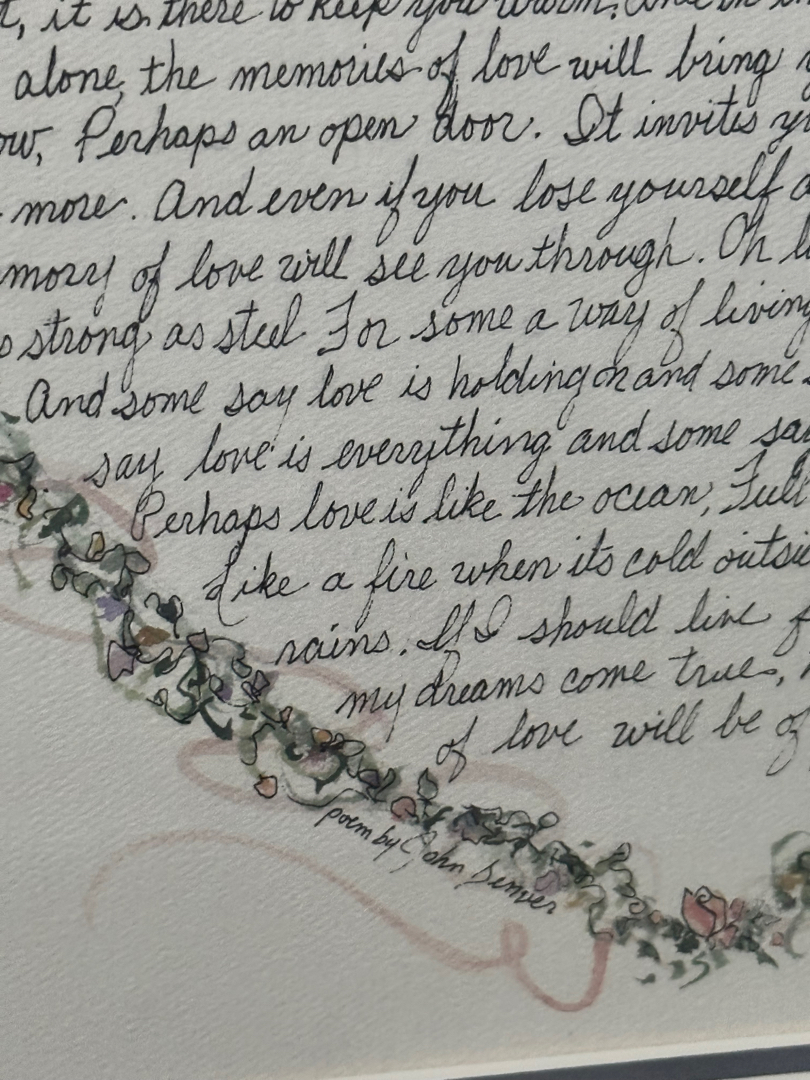 t, it is there to keep you warm. And in
alone, the memories of love will bring
ow, Perhaps an open door. It invites yo
more. And even if you lose yourself a
mory of love will see you through. Oh l
strong as steel For some a way of living
And some say love is holding on and some s
say love is everything and some say
Perhaps love is like the ocean, Full
Like a fire when its cold outsi
rains. If I should live f
my dreams come true,
of love will be of
poem by John Denver